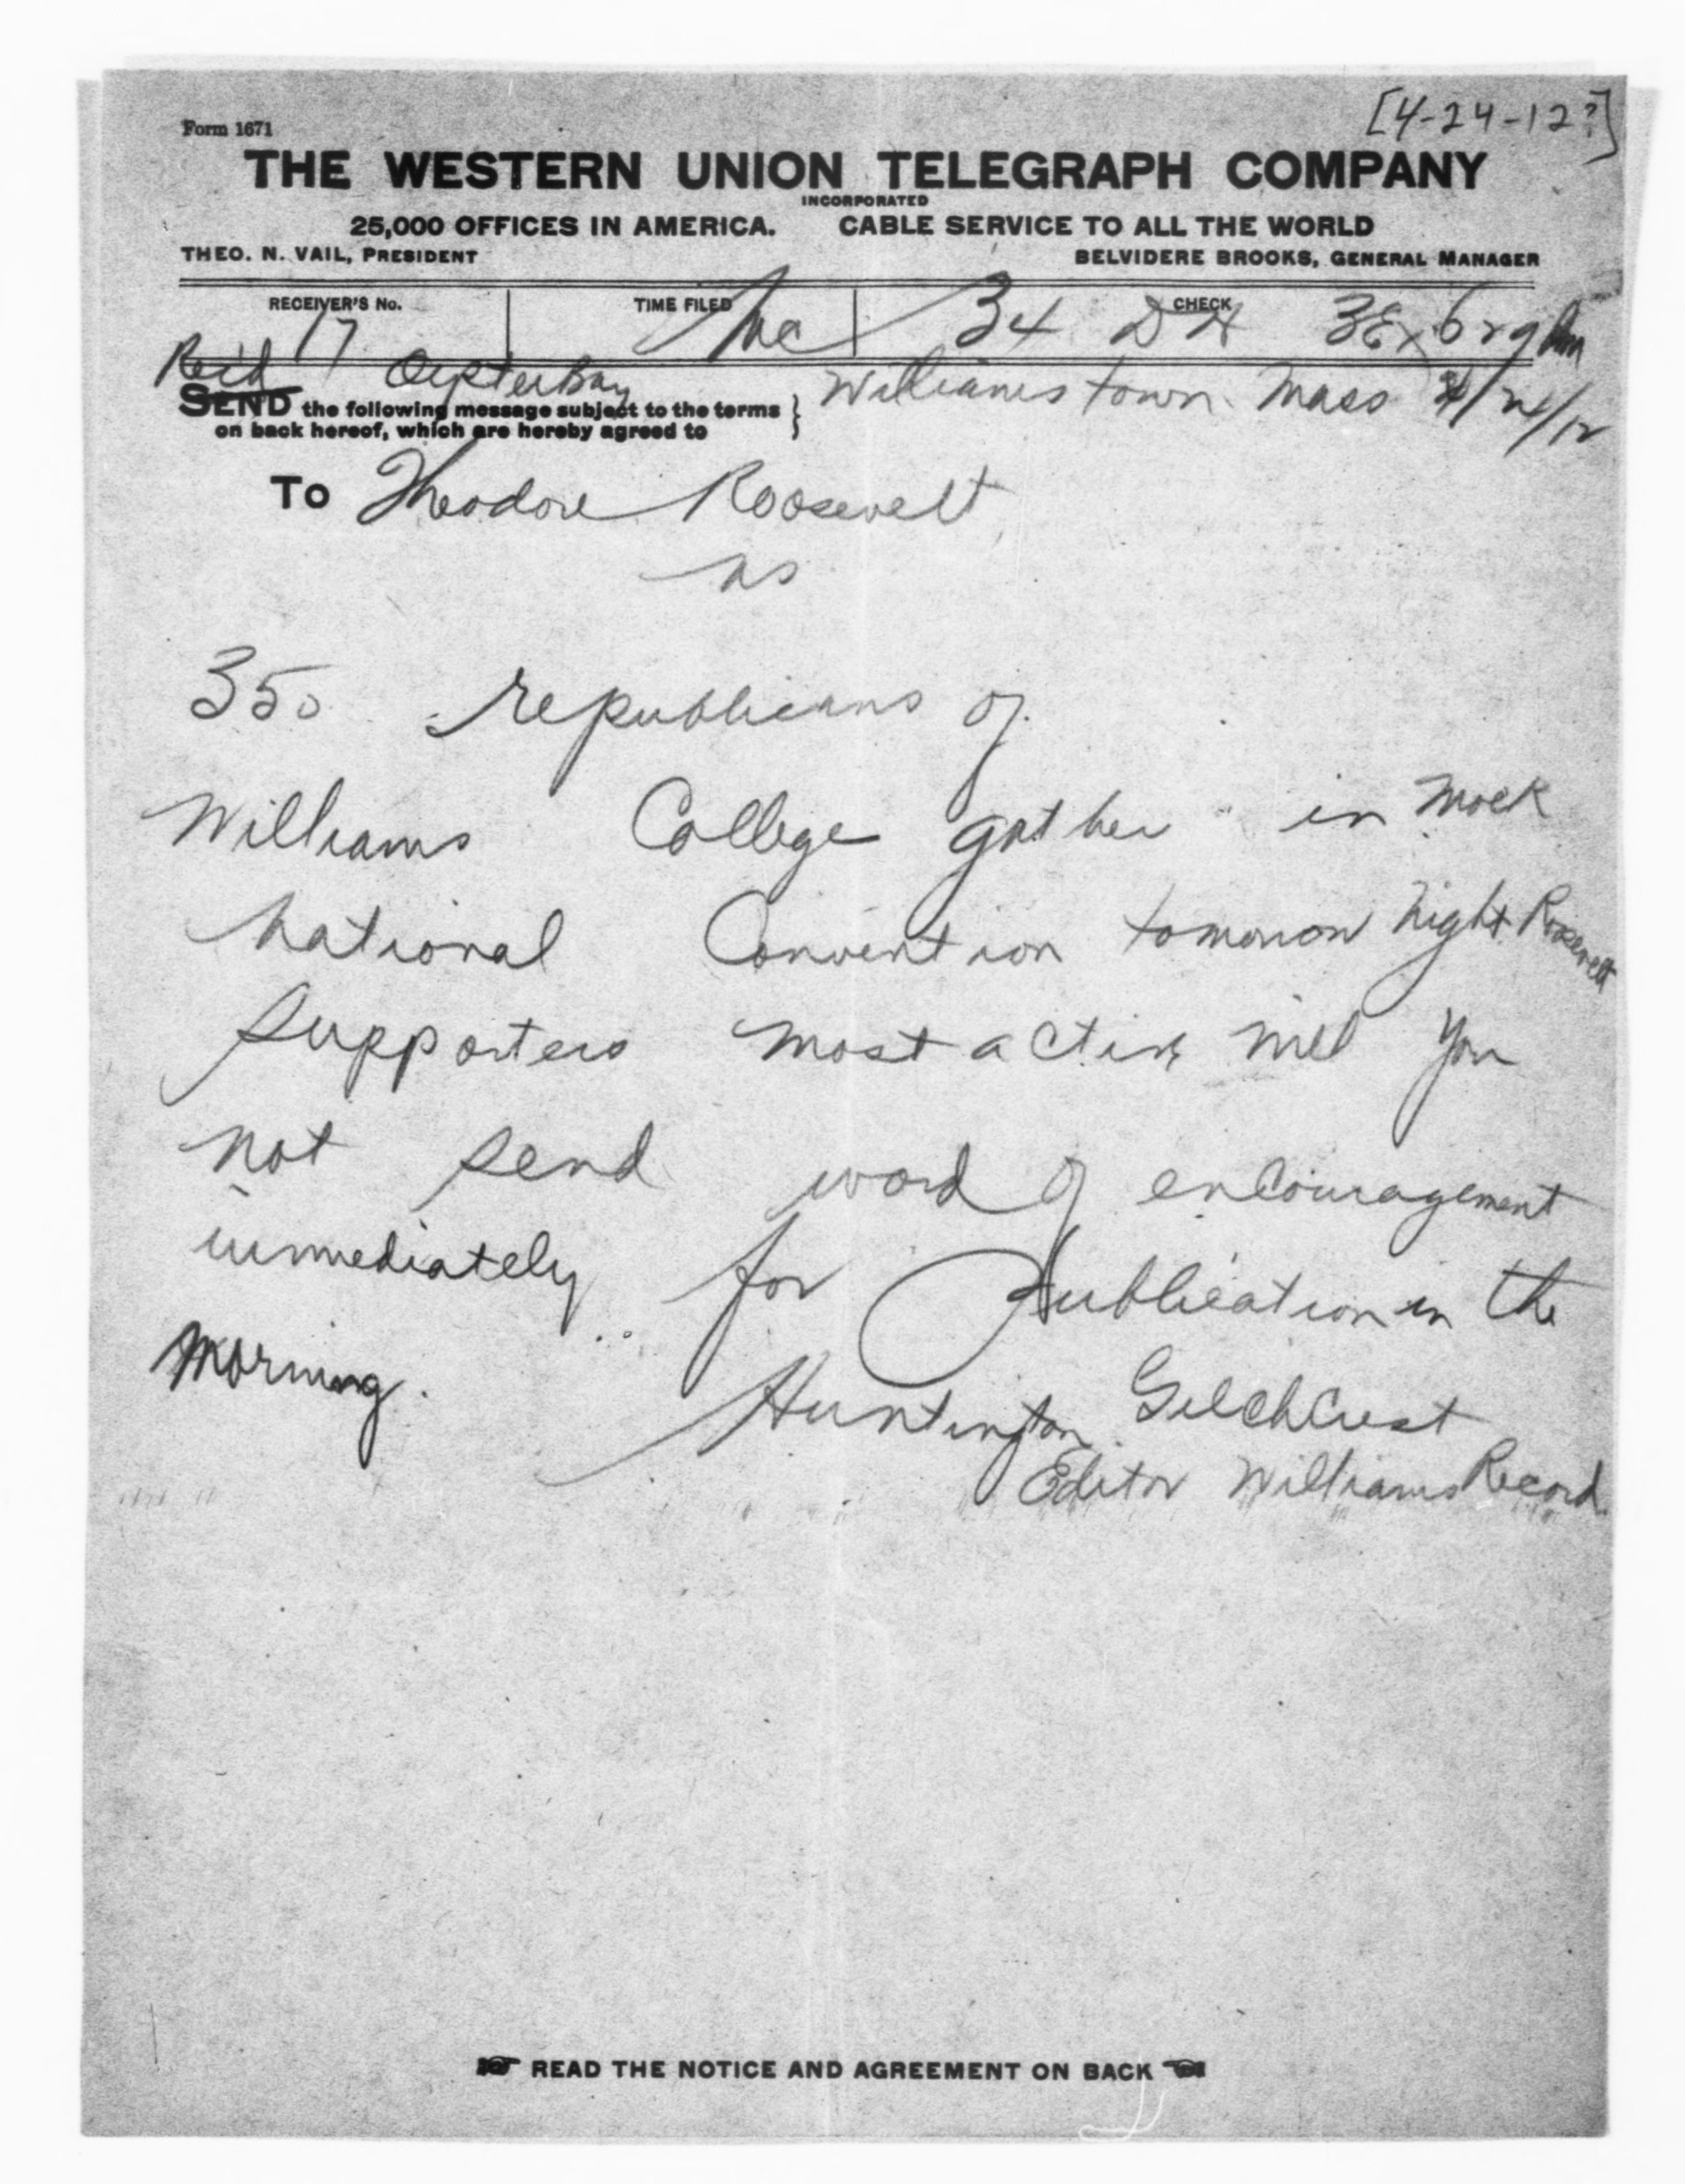 [4-24-12?]
Form 1671
THE WESTERN UNION TELEGRAPH COMPANY
INCORPORATED
25,000 OFFICES IN AMERICA. CABLE SERVICE TO ALL THE WORLD
THEO. N. VAIL, PRESIDENT BELVIDERE BROOKS, GENERAL MANAGER
RECEIVER'S No. TIME FILED CHECK
17 34 DH
Rec'd Oysterbay Williamstown Mass 4/24/12
SEND the following message subject to the terms
on back hereof, which are hereby agreed to
To Theodore Roosevelt
350 republicans of
Williams College gather in mock
national Convention tomorrow night Roosevelt
supporters most active will you
not send word of encouragement
immediately for publication in the
morning.
Huntington Gilchrest
Editor Williams Record.
READ THE NOTICE AND AGREEMENT ON BACK